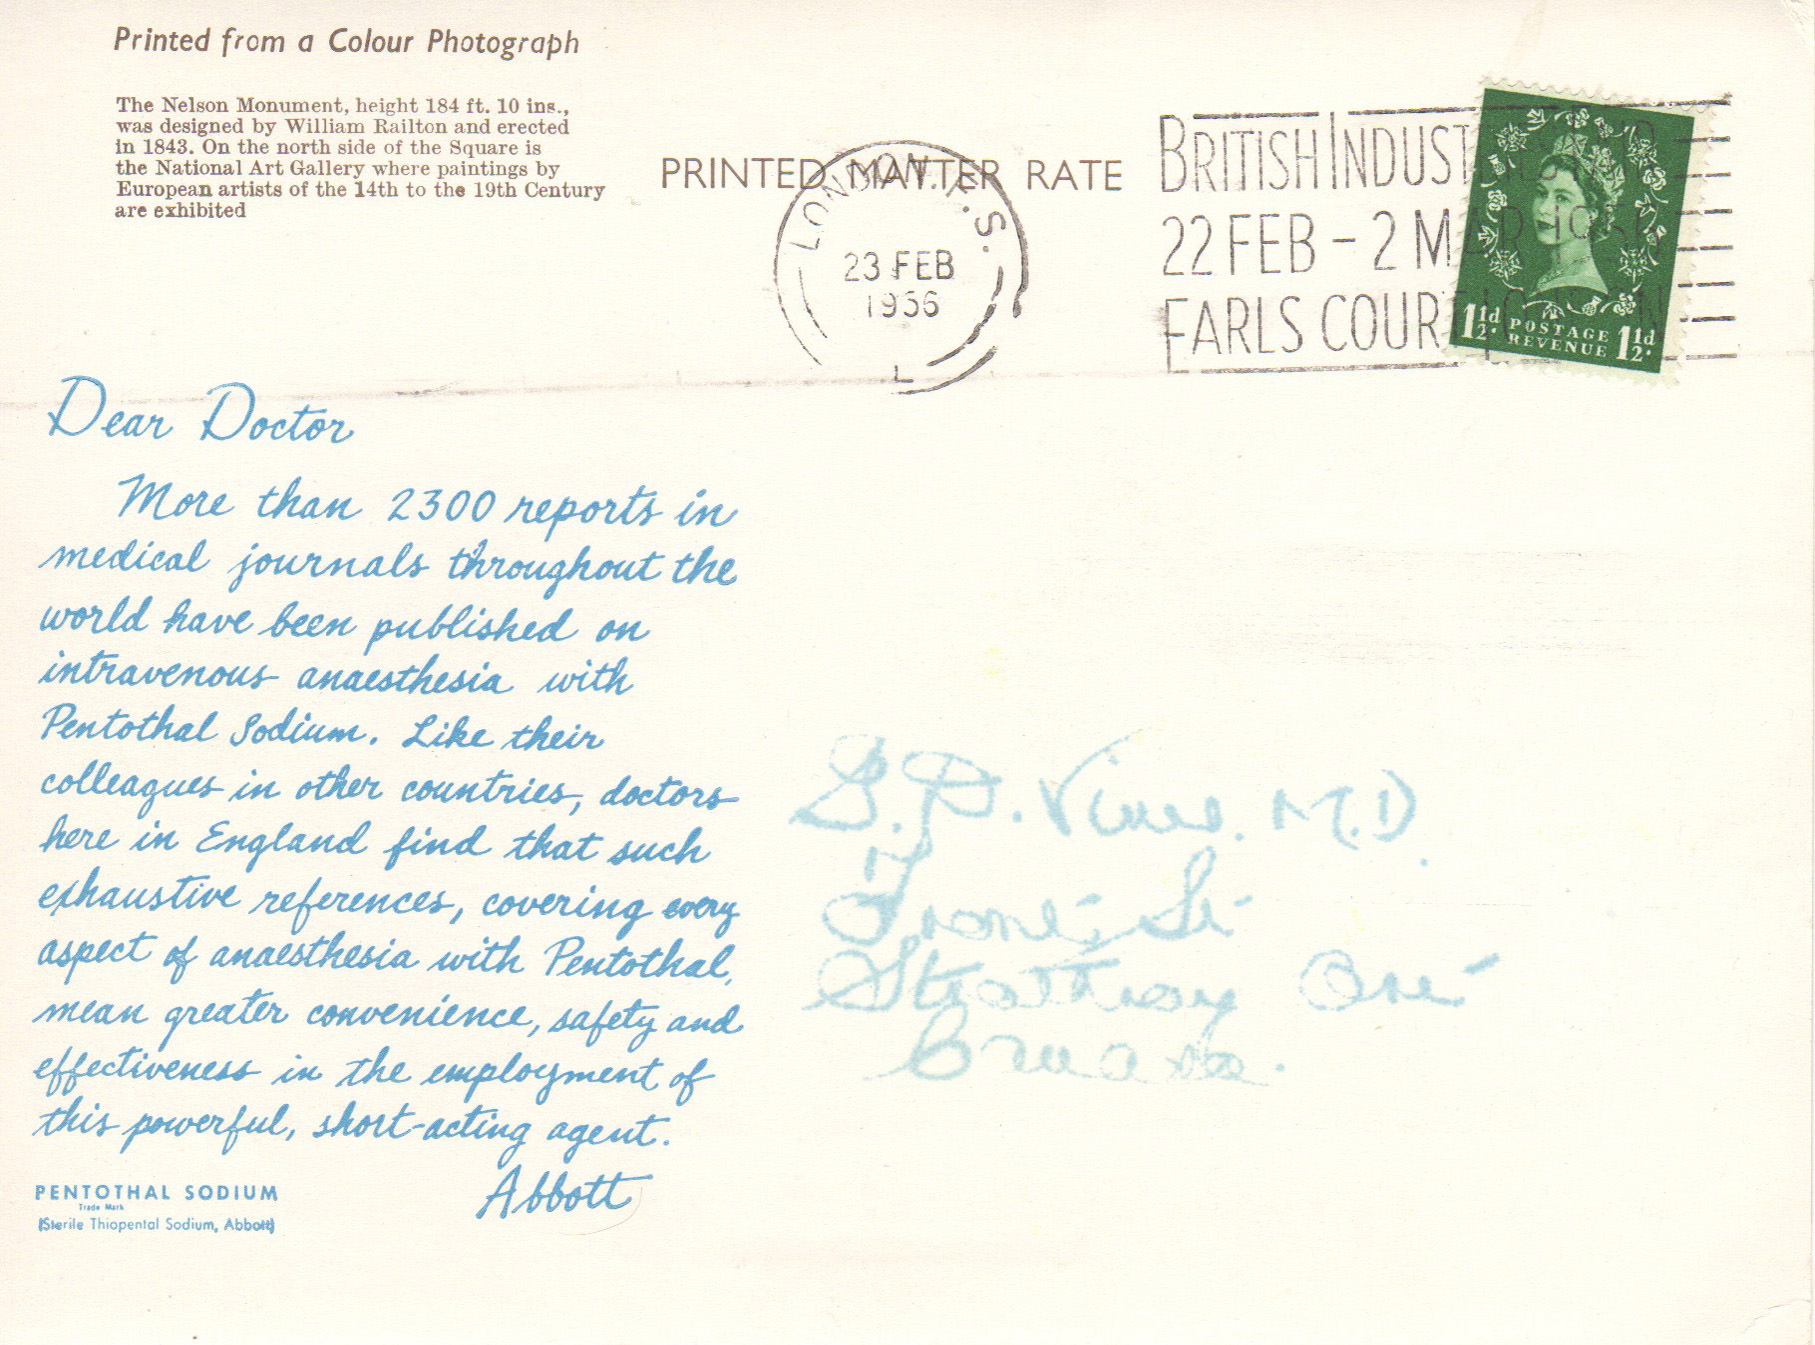 Printed from a Colour Photograph
The Nelson Monument, height 184 ft. 10 ins.,
was designed by William Railton and erected
in 1843. On the north side of the Square is
the National Art Gallery where paintings by
European artists of the 14th to the 19th Century
are exhibited
PRINTED MATTER RATE
LONDON. F.S.
23 FEB
1956
L
BRITISH INDUSTRIES
22 FEB - 2 MAR 1956
EARLS COURT LONDON
1½d. POSTAGE 1½d.
REVENUE
Dear Doctor
More than 2300 reports in
medical journals throughout the
world have been published on
intravenous anaesthesia with
Pentothal Sodium. Like their
colleagues in other countries, doctors
here in England find that such
exhaustive references, covering every
aspect of anaesthesia with Pentothal,
mean greater convenience, safety and
effectiveness in the employment of
this powerful, short-acting agent.
Abbott
PENTOTHAL SODIUM
Trade Mark
(Sterile Thiopental Sodium, Abbott)
M.D.
Front St
Strathroy Ont
Canada.